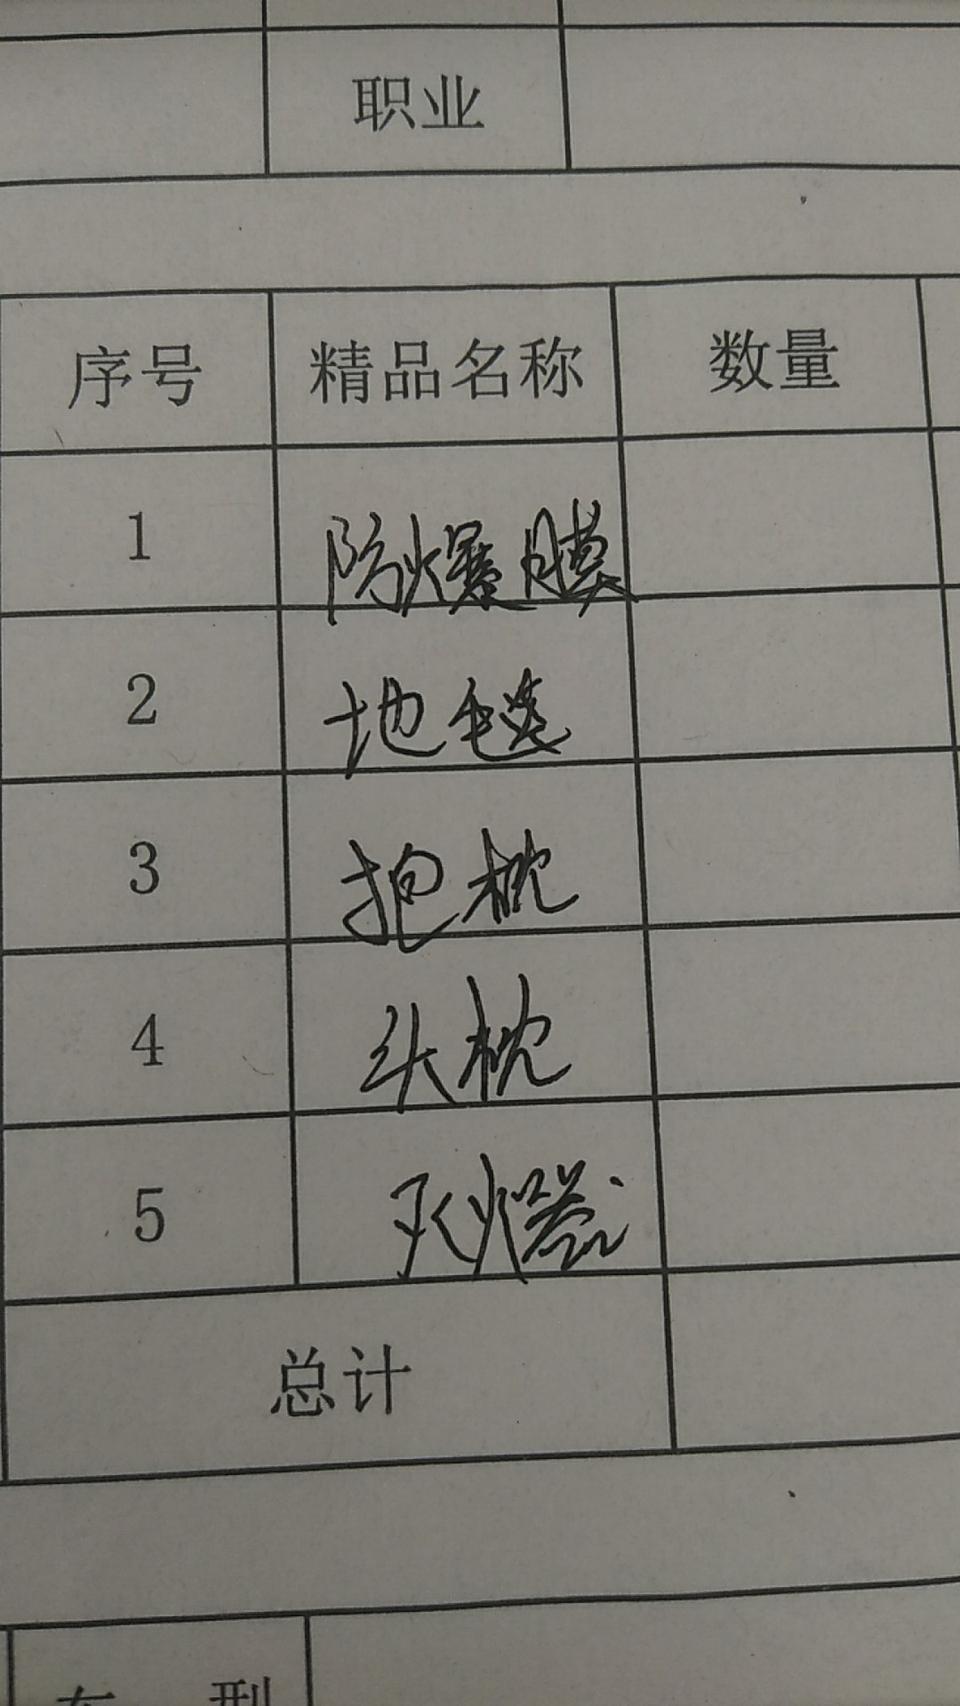 职业
序号 精品名称 数量
1 防爆膜
2 地毯
3 抱枕
4 头枕
5 灭火器
总计
车 型